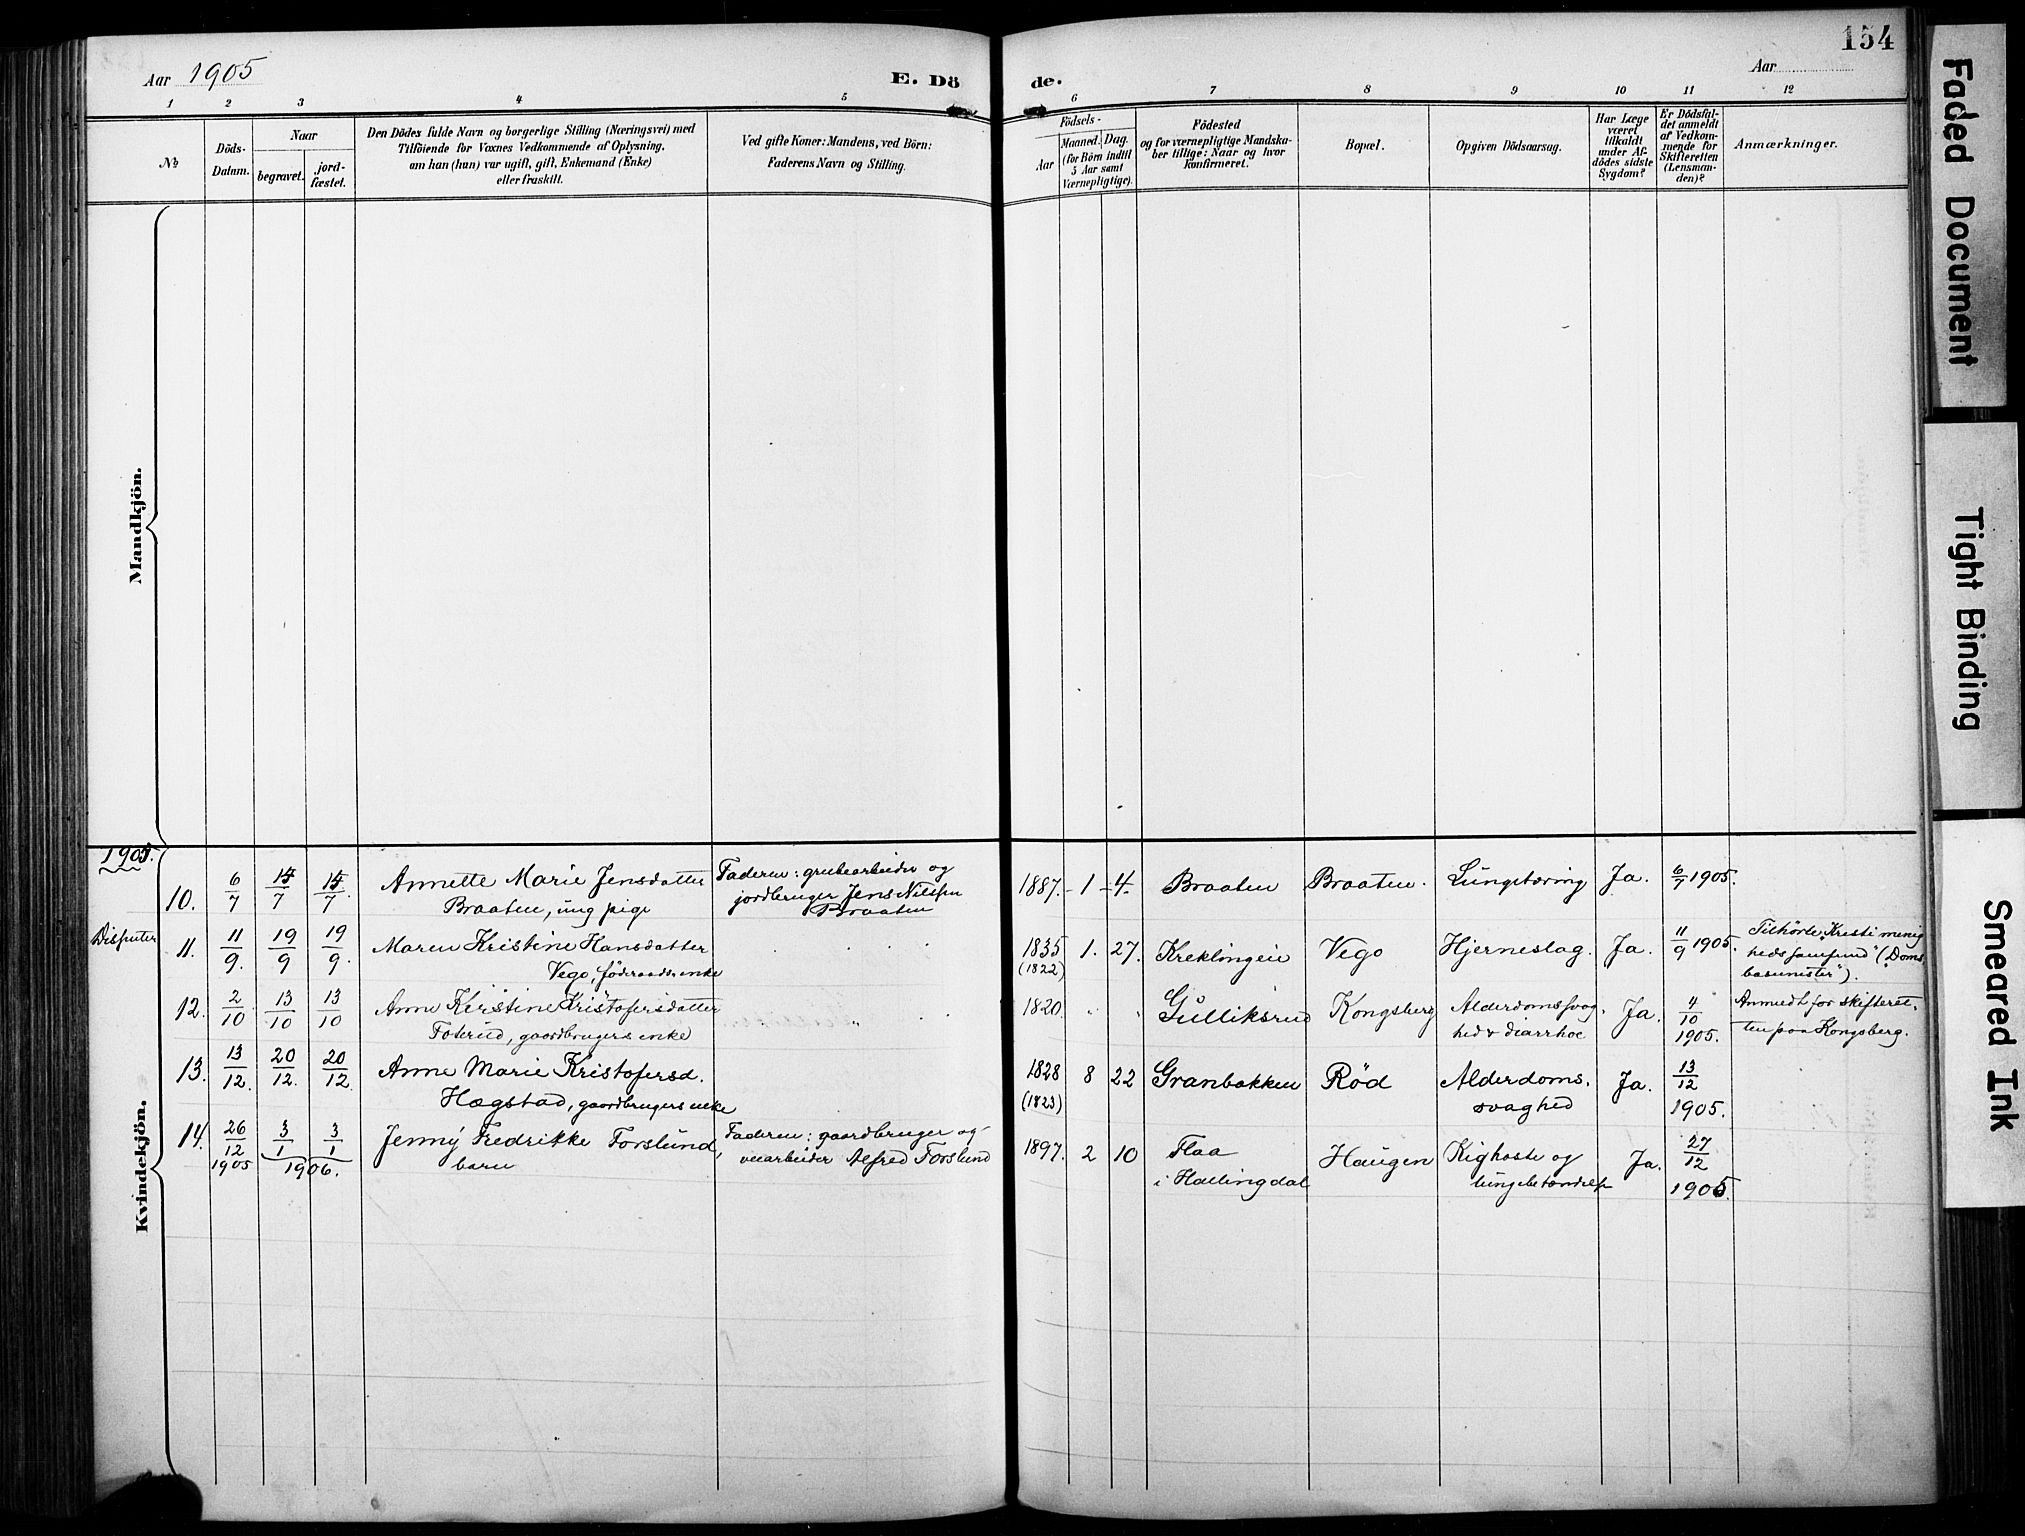 154
Aar 1905
E. Dö
de.
Aar
1 2 3 4 5 6 7 8 9 10 11 12
No
Döds-
Datum.
Naar
begravet.
jord-
fæstet.
Den Dödes fulde Navn og borgerlige Stilling (Næringsvei) med
Tilföiende for Voxnes Vedkommende af Oplysning,
om han (hun) var ugift, gift, Enkemand (Enke)
eller fraskilt.
Ved gifte Koner: Mandens, ved Börn:
Faderens Navn og Stilling.
Födsels-
Aar
Maaned. Dag.
(for Börn indtil
5 Aar samt
Værnepligtige).
Födested
og for værnepligtige Mandska-
ber tillige: Naar og hvor
konfirmeret.
Bopæl.
Opgiven Dödsaarsag.
Har Læge
været
tilkaldt
under Af-
dödes sidste
Sygdom?
Er Dödsfal-
det anmeldt
af Vedkom-
mende for
Skifteretten
(Lensman-
den)?
Anmærkninger.
Mandkjön.
Kvindekjön.
1905.
10. 6/7 15/7 15/7. Annette Marie Jensdatter
Braaten, ung pige
Faderen: grubearbeider og
jordbruger Jens Nilsen
Braaten
1887. 1 4. Braaten Braaten. Lungetæring Ja. 6/7 1905.
Disputer
11. 11/9. 19/9 19/9. Maren Kristine Hansdatter
Vego, föderaadsenke
1835
(1822)
1. 27. Kreklingeie Vego Hjerneslag. Ja. 11/9 1905.
Tilhörte "Kristi menig
hedssamfund" ("Doms
basunister").
12. 2/10 13/10 13/10 Anne Kirstine Kristofersdatter
Foserud, gaardbrugers enke
1820. " " Gulliksrud Kongsberg Alderdomssvag
hed & diarrhoe
Ja. 4/10
1905.
Anmeldt for skifteret-
ten paa Kongsberg.
13. 13/12. 20/12. 20/12 Anne Marie Kristofersd.
Hægstad, gaardbrugers enke
1828
(1823)
8 22 Granbakken Rød Alderdoms.
svaghed
Ja. 13/12
1905.
14. 26/12 3/1 3/1 Jenny Fredrikke Forslund,
1905 1906. barn
Faderen: gaardbruger og
veiarbeider Alfred Forslund
1897. 2 10 Flaa
i Hallingdal
Haugen Kighoste og
lungebetændelse
Ja. 27/12
1905
Faded Document
Tight Binding
Smeared Ink